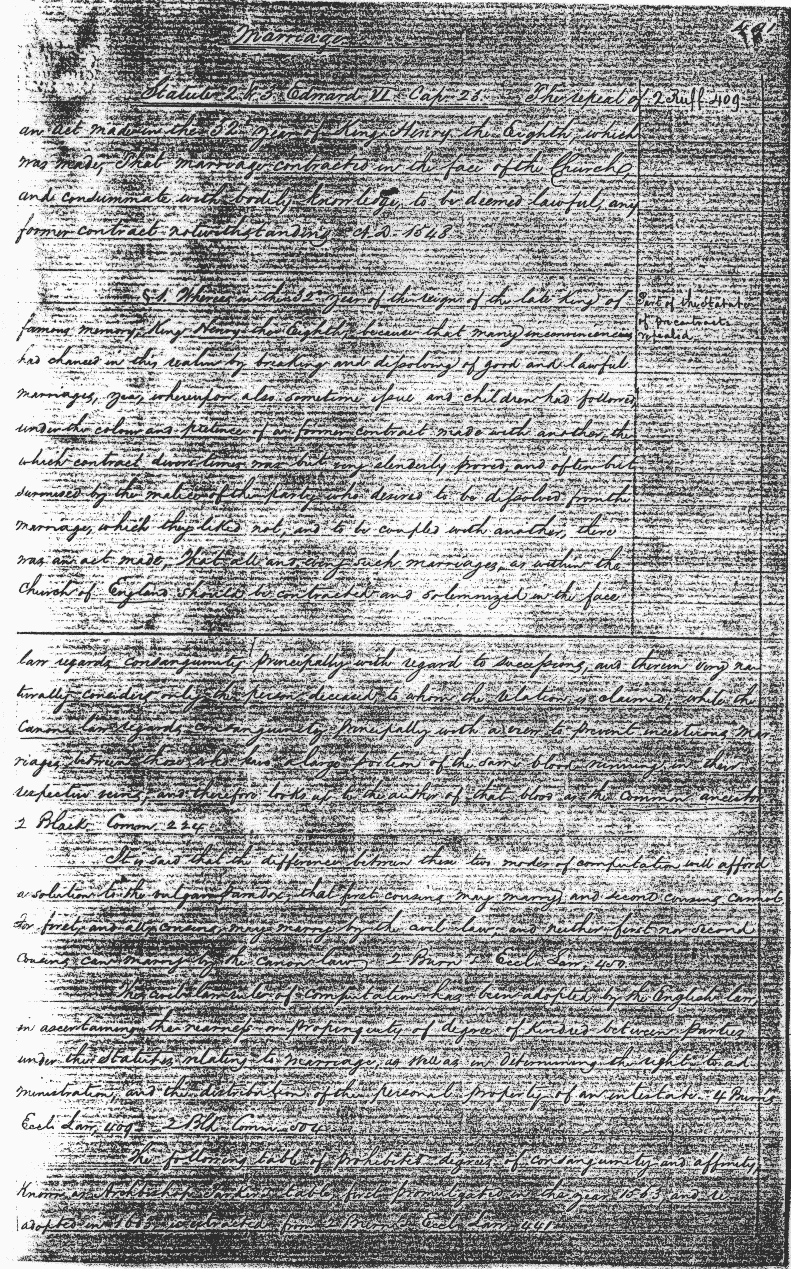 Marriage
481
Statute 2 & 3 Edward VI Cap. 23. The repeal of
2 Ruff. 409
an act made in the 32d year of King Henry the Eighth, which
was made, That marriage contracted in the face of the Church,
and consummate with bodily knowledge, to be deemed lawful, any
former contract notwithstanding A.D. 1548
§ 1. Whereas in the 32d year of the reign of the late King of
Part of the Statute
of precontracts
repealed
famous memory, King Henry the Eighth, because that many inconveniences
had chanced in this realm by breaking and dissolving of good and lawful
marriages, yea, whereupon also sometime issue and children had followed,
under the colour and pretence of a former contract made with another, the
which contract divers times was but very slenderly proved, and often but
surmised by the malice of the party who desired to be dissolved from the
marriage, which they liked not, and to be coupled with another, there
was an act made, That all and every such marriages, as within the
Church of England should be contracted and solemnized in the face
law regards consanguinity principally with regard to successions, and therein very na-
turally considers only the person deceased to whom the relation is claimed; while the
Canon law regards consanguinity principally with a view to prevent incestuous mar-
riages between those who have a large portion of the same blood running in their
respective veins; and therefore looks up to the author of that blood or the common ancestor
2 Black. Comm. 224
It is said that the difference between these two modes of computation will afford
a solution to the vulgar paradox, that first cousins may marry, and second cousins cannot
For first and all cousins may marry by the civil law and neither first nor second
cousins can marry by the canon law. 2 Burn's Eccl. Law, 409
The civil law rule of computation has been adopted by the English law
in ascertaining the nearness or propinquity of degree of kindred between parties
under the statutes relating to marriage, as well as in determining the right to ad-
ministration, and the distribution of the personal property of an intestate. 4 Burn's
Eccl. Law, 409 2 Bl. Comm. 504
The following table of prohibited degrees of consanguinity and affinity,
Known as Archbishop Parker's table, first promulgated in the year 1563 and re-
adopted in 1603 is extracted from 2 Burn's Eccl. Law, 441